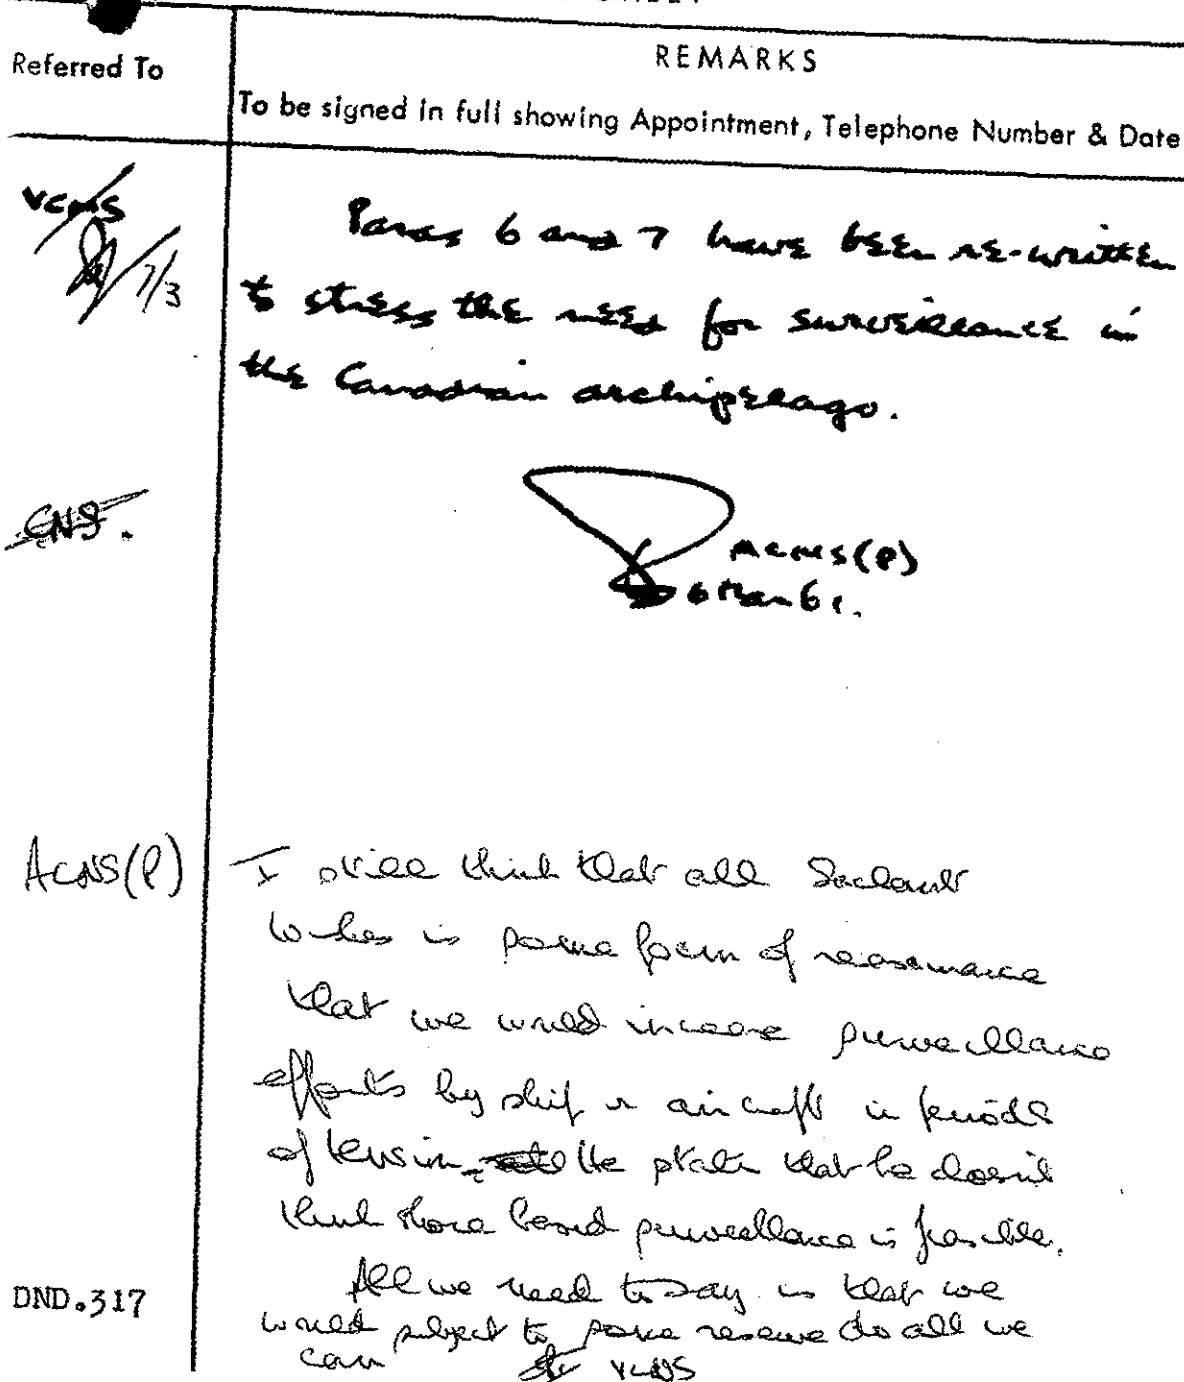 Referred To
REMARKS
To be signed in full showing Appointment, Telephone Number & Date
VCNS
7/3
Paras 6 and 7 have been re-written
to stress the need for surveillance in
the Canadian archipelago.
CNS.
ACNS(P)
6 Mar 61.
ACNS(P)
I still think that all Saclant
wishes is some form of reassurance
that we would increase surveillance
efforts by ship or aircraft in periods
of tension, He states that he doesn't
think shore based surveillance is feasible.
All we need to say is that we
would subject to some reserve do all we
can
VCNS
DND.317